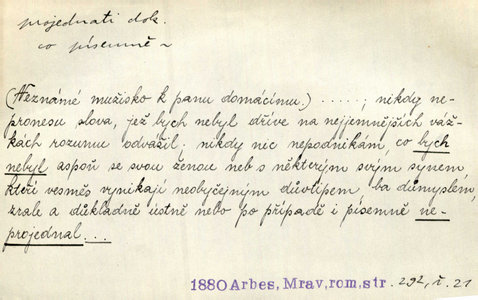 projednati dok.
co písemně ~
(Neznámé mužisko k panu domácímu.) .....; nikdy ne-
pronesu slova, jež bych nebyl dříve na nejjemnějších váž-
kách rozumu odvážil; nikdy nic nepodnikám, co bych
nebyl aspoň se svou ženou neb s některým svým synem,
kteří vesměs vynikají neobyčejným důvtipem ba důmyslem,
zrale a důkladně ústně nebo po případě i písemně ne-
projednal...
1880 Arbes, Mrav, rom, str. 292, ř. 21